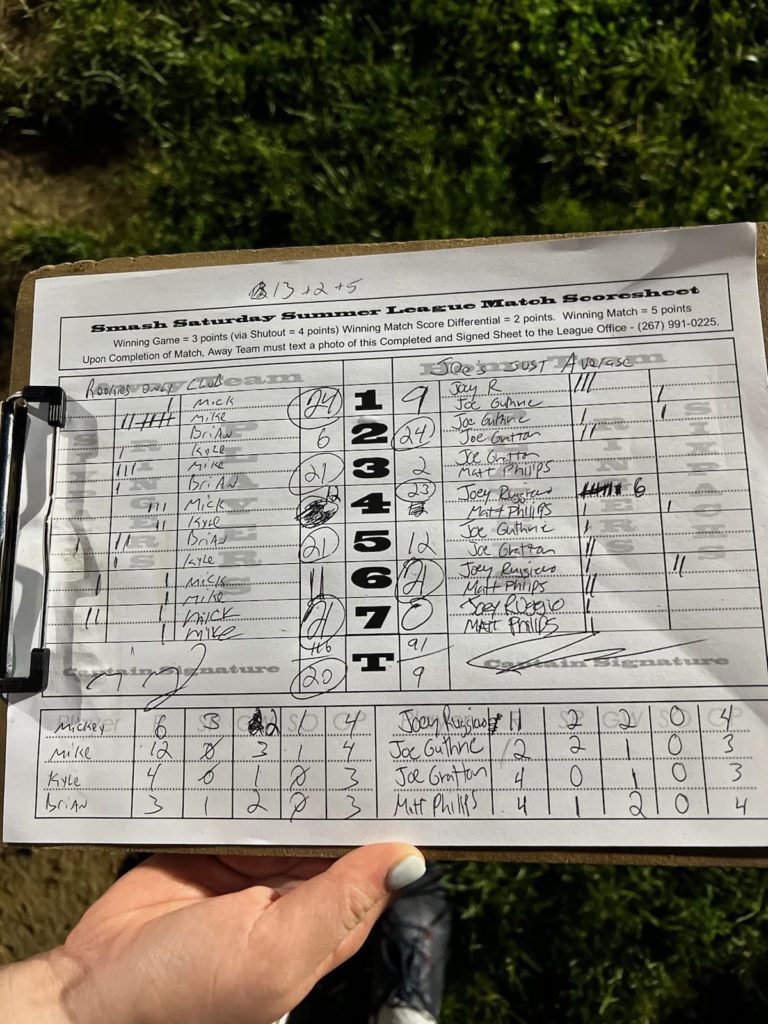 13+2+5
Smash Saturday Summer League Match Scoresheet
Winning Game = 3 points (via Shutout = 4 points) Winning Match Score Differential = 2 points. Winning Match = 5 points
Upon Completion of Match, Away Team must text a photo of this Completed and Signed Sheet to the League Office - (267) 991-0225.
Rookies Only Club Joe's Just Average
Mick 24 1 9 Joey R
Mike Joe Guthrie
Brian 6 2 24 Joe Guthrie
Kyle Joe Gratton
Mike 21 3 2 Joe Gratton
Brian Matt Philips
Mick 12 4 23 Joey Ruggiero 6
Kyle Matt Philips
Brian 21 5 12 Joe Guthrie
Kyle Joe Gratton
Mick 11 6 21 Joey Ruggiero
Mike Matt Philips
Mick 21 7 0 Joey Ruggio
Mike Matt Philips
Captain Signature 116 20 T 91 9 Captain Signature
Mickey 6 3 2 1 4 Joey Ruggiero 11 2 2 0 4
Mike 12 0 3 1 4 Joe Guthrie 2 2 1 0 3
Kyle 4 0 1 0 3 Joe Gratton 4 0 1 0 3
Brian 3 1 2 0 3 Matt Philips 4 1 2 0 4